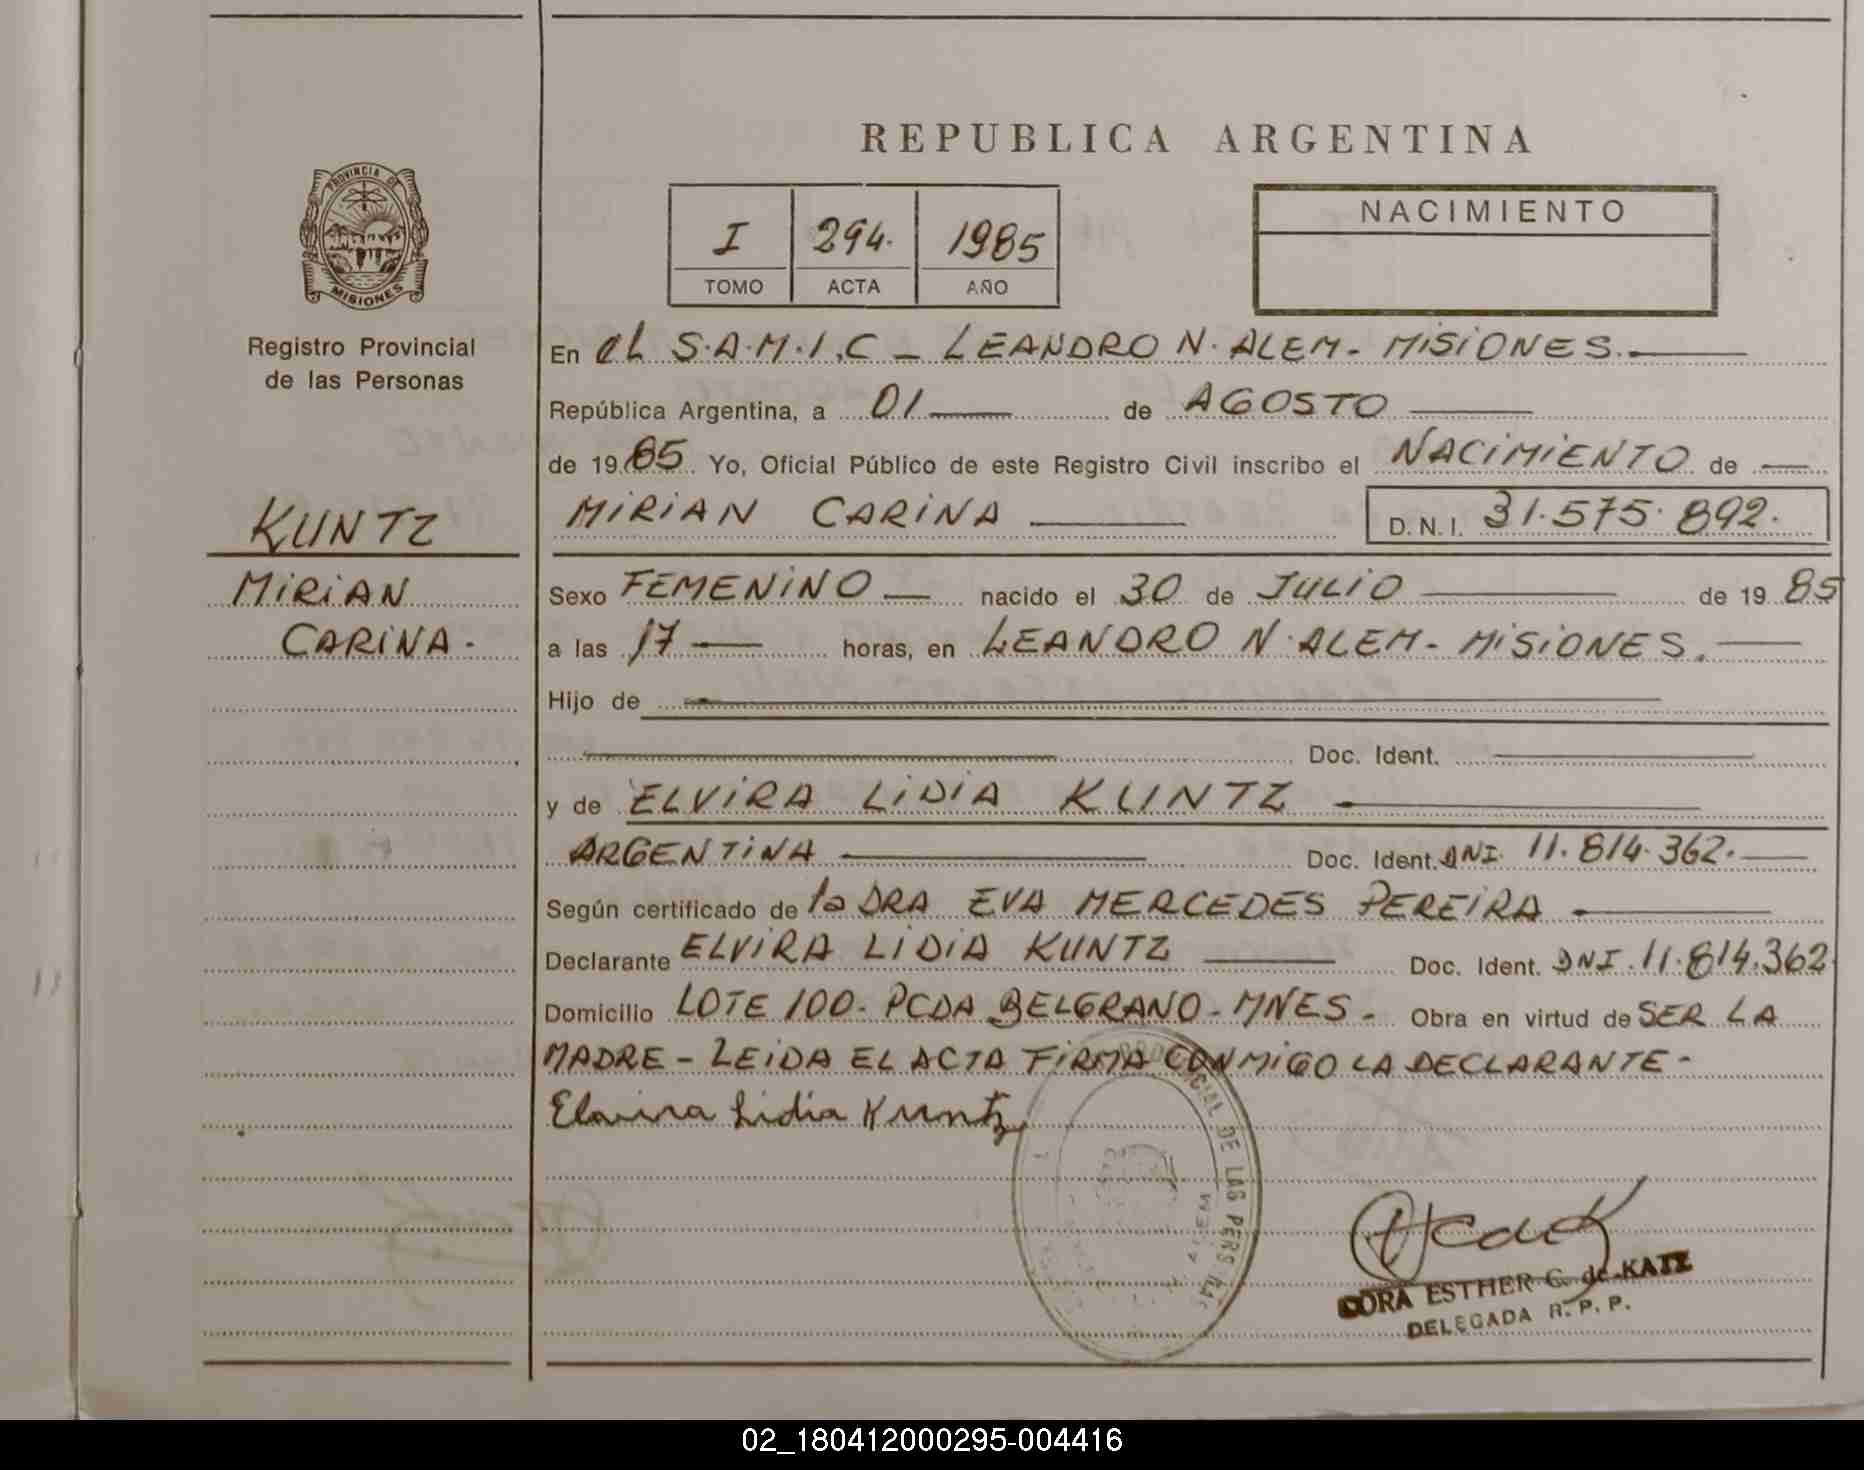 REPUBLICA ARGENTINA
PROVINCIA DE
MISIONES
Registro Provincial
de las Personas
I 294. 1985
TOMO ACTA AÑO
NACIMIENTO
KUNTZ
MIRIAN
CARINA.
En el S.A.M.I.C – LEANDRO N. ALEM – MISIONES.
República Argentina, a 01 de AGOSTO
de 1985 Yo, Oficial Público de este Registro Civil inscribo el NACIMIENTO de
MIRIAN CARINA D.N.I. 31.575.892.
Sexo FEMENINO nacido el 30 de JULIO de 1985
a las 17 horas, en LEANDRO N. ALEM – MISIONES.
Hijo de
Doc. Ident.
y de ELVIRA LIDIA KUNTZ
ARGENTINA Doc. Ident. DNI. 11.814.362.
Según certificado de la DRA EVA MERCEDES PEREIRA
Declarante ELVIRA LIDIA KUNTZ Doc. Ident. DNI. 11.814.362
Domicilio LOTE 100 – PCDA BELGRANO – MNES – Obra en virtud de SER LA
MADRE – LEIDA EL ACTA FIRMA CONMIGO LA DECLARANTE –
Elvira Lidia Kuntz
DE LAS PERS
ALEM
ESTHER G. de KATZ
DELEGADA R. P. P.
02_180412000295-004416